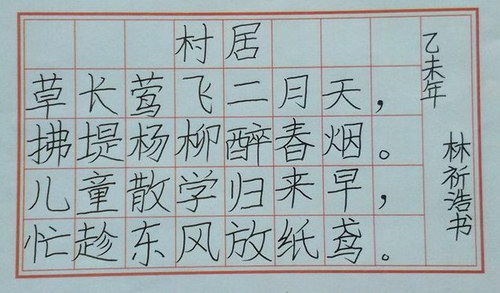 村居
草长莺飞二月天，
拂堤杨柳醉春烟。
儿童散学归来早，
忙趁东风放纸鸢。
乙未年
林祈浩书